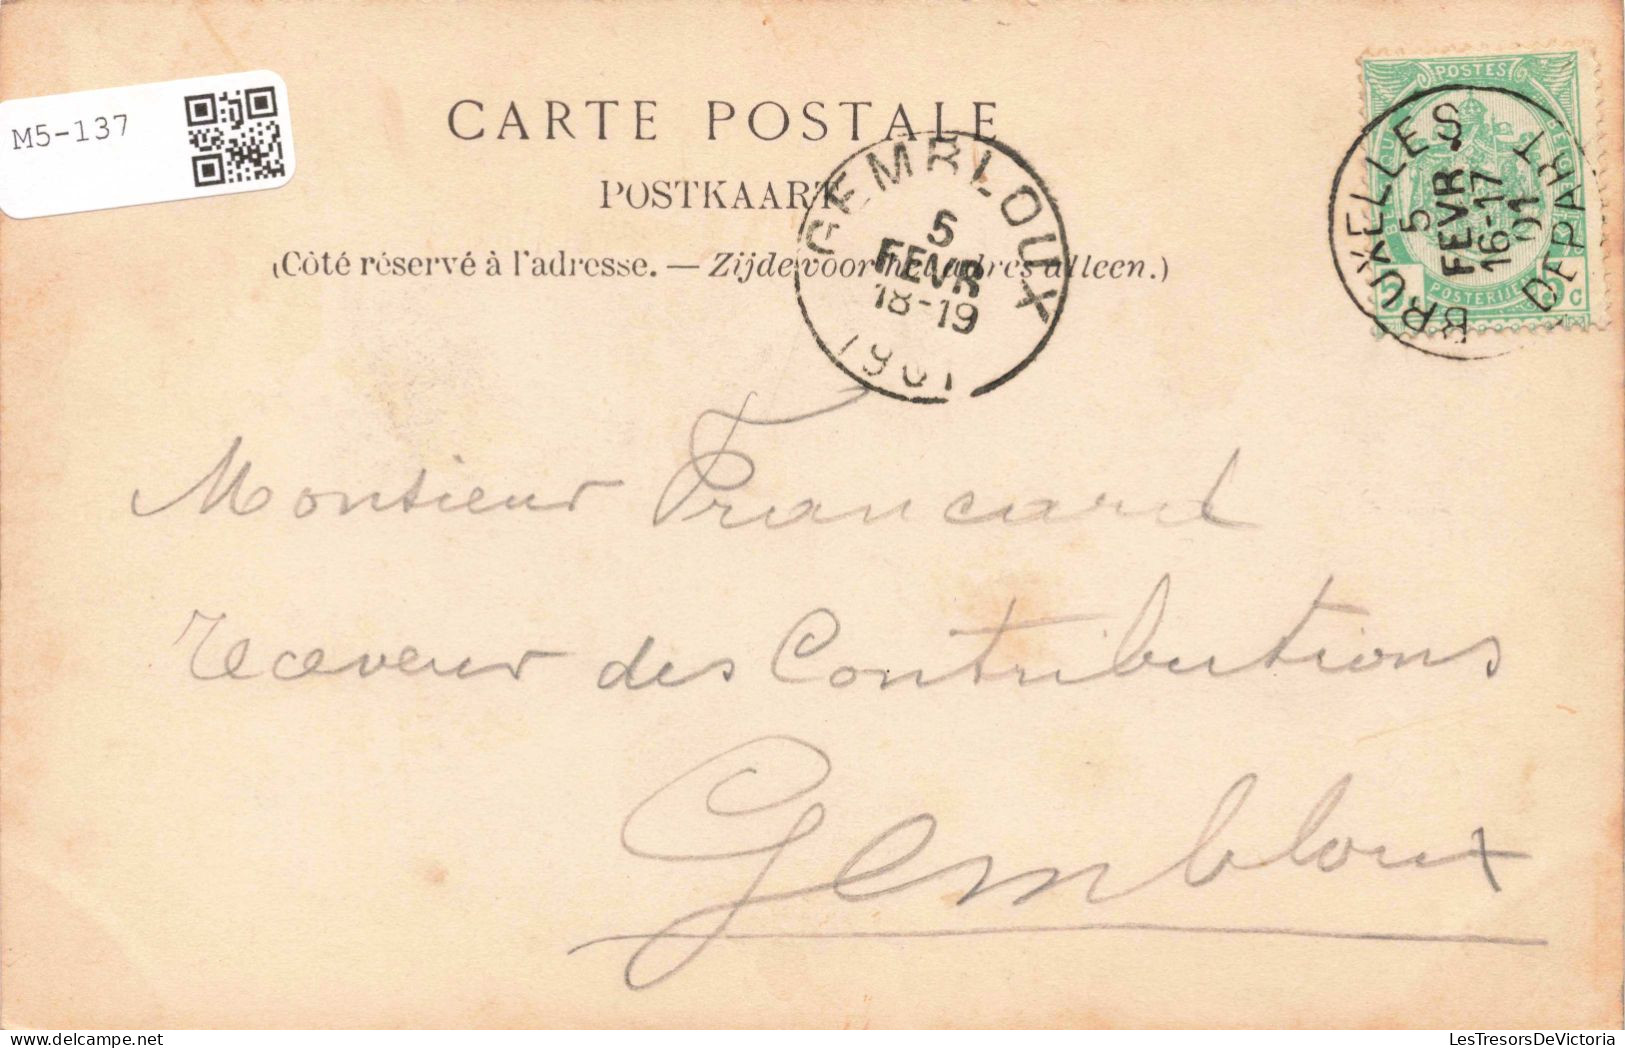 M5-137
CARTE POSTALE
POSTKAART
(Côté réservé à l'adresse. — Zijde voor het adres alleen.)
GEMBLOUX
5
FEVR
18-19
1901
POSTES
BELGIQUE
5 c
POSTERIJEN
BRUXELLES
5
FEVR
16-17
01
DEPART
Monsieur Francard
receveur des Contributions
Gembloux
LesTresorsDeVictoria